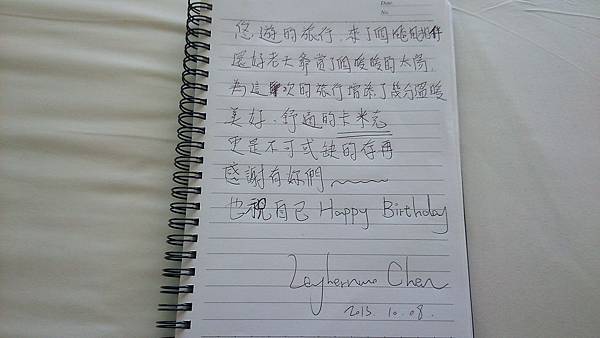 Date:
No.
悠遊的旅行、來了個
還好老天爺賞了個暖暖的太陽
為這次的旅行增添了幾分溫暖
美好、行遍的卡米克
更是不可或缺的存再
感謝有妳們～～
也祝自己 Happy Birthday
Chen
2013. 10. 08.